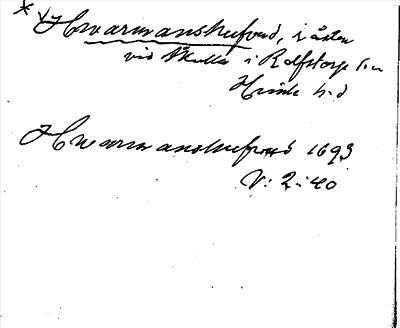 Hwarmanshufvud, i åsen
vid Skulla i Rolfstorp sn
Himle hd
Hwarmanshufwud 1693
V: 2: 40